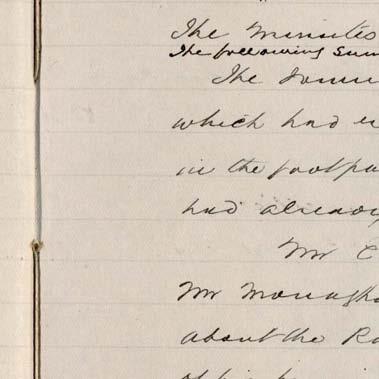 The Minutes
The following Sum
The
which had
in the footpa
had already
Mr C
Mr Monagha
about the Ro